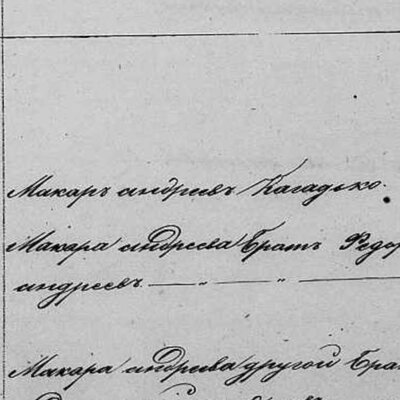 Макаръ андреевъ Кагадько.
Макара андреева Братъ Федор
андреевъ — " — " —
Макара андреева другой Бра